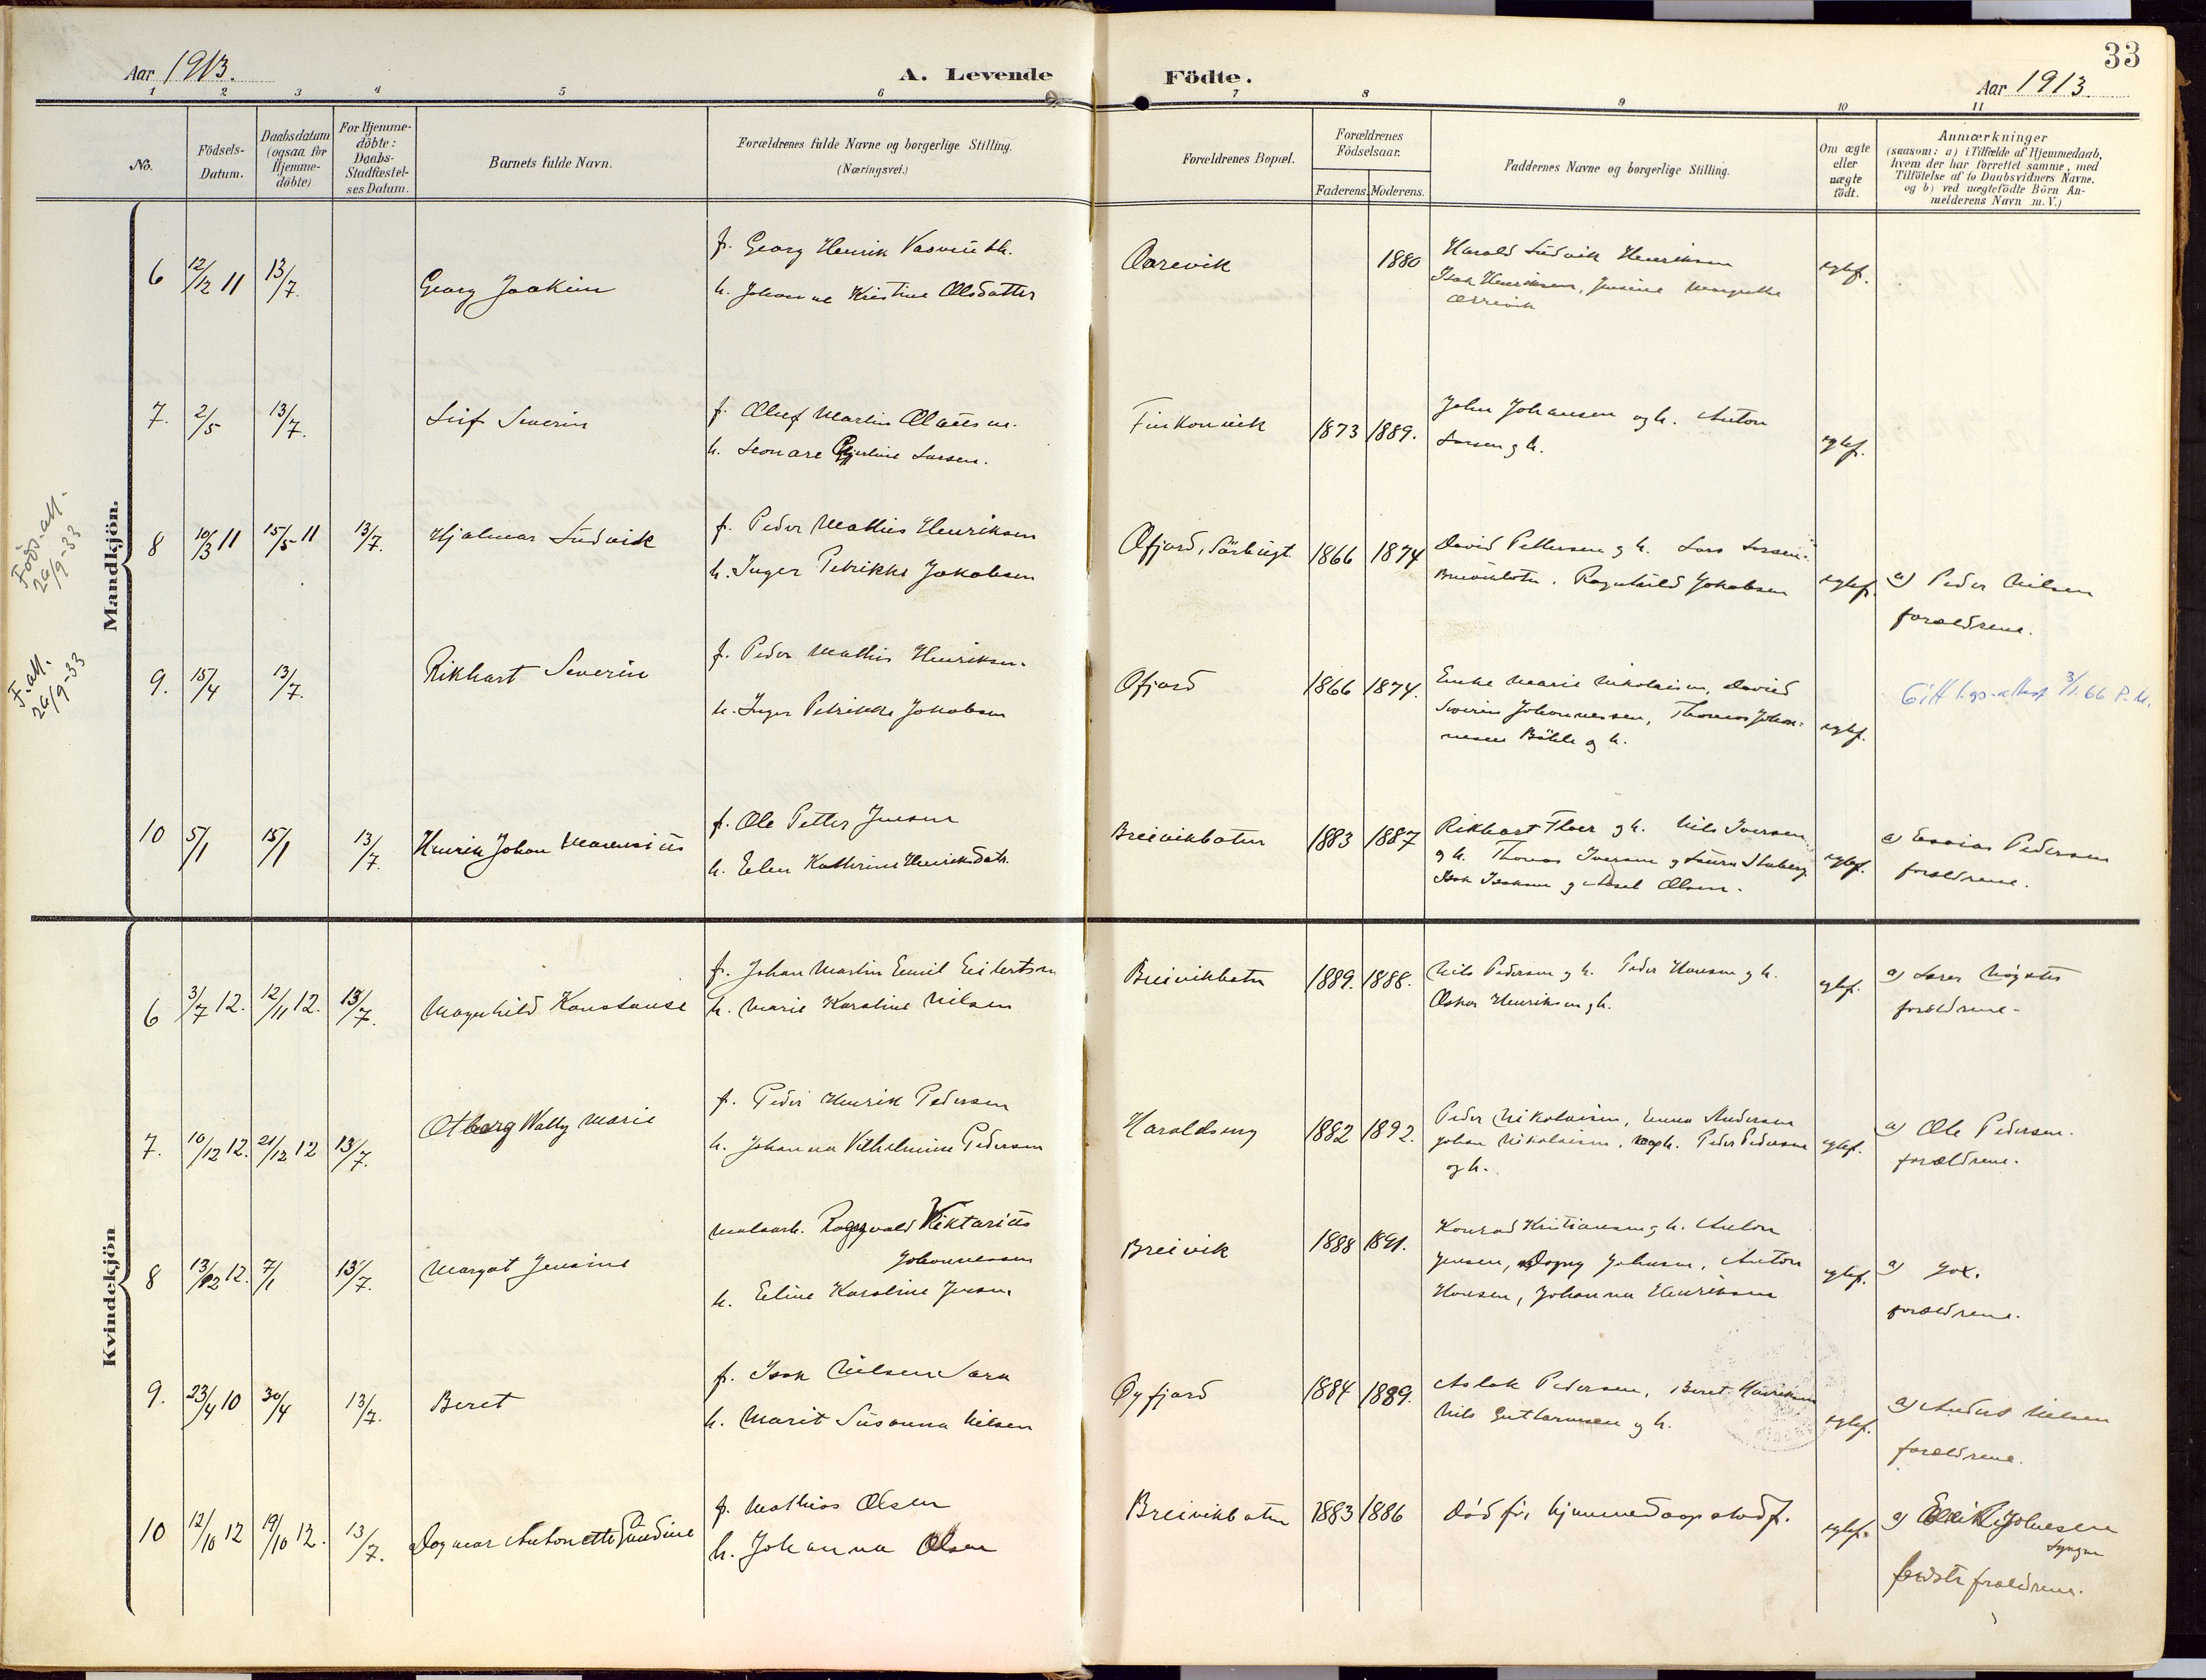 33
Aar 1913.
A. Levende Födte.
Aar 1913.
1 2 3 4 5 6 7 8 9 10 11
No.
Födsels-
Datum.
Daabsdatum
(ogsaa for
Hjemme-
döbte)
For Hjemme-
döbte:
Daabs-
Stadfæstel-
ses Datum.
Barnets fulde Navn.
Forældrenes fulde Navne og borgerlige Stilling.
(Næringsvei.)
Forældrenes Bopæl.
Forældrenes
Födselsaar.
Faderens. Moderens.
Faddernes Navne og borgerlige Stilling.
Om ægte
eller
uægte
födt.
Anmærkninger
(saasom: a) i Tilfælde af Hjemmedaab,
hvem der har forrettet samme, med
Tilföielse af to Daabsvidners Navne,
og b) ved uægtefödte Börn An-
melderens Navn m. V.)
Mandkjön.
6 12/12 11 13/7. Georg Joakim
f. Georg Henrik
h. Johanne Kristine Olsdatter
1880
Harald Ludvik Henriksen
Isak Henriksen,
ægtef.
7. 2/5 13/7. Leif Severin
f. Oluf Martin
h. Larsen.
Finkonvik 1873 1889.
John Johansen og h. Anton
Larsen og h.
ægtef.
Föds.att.
26/9-33
8 10/3 11 15/5 11 13/7. Hjalmar Ludvik
f. Peder Mathis Henriksen
h. Inger Petrikke Jakobsen
Øfjord, Sörbugt 1866 1874
David Pettersen og h. Lars Larsen
Breivikbotn. Ragnhild Jakobsen
ægtef.
a) Peder Nilsen
forældrene.
F.att.
26/9-33
9. 15/4 13/7. Rikhart Severin
f. Peder Mathis Henriksen
h. Inger Petrikke Jakobsen
Øfjord 1866 1874.
Marie Nikolaisen, David
Severin Johannessen, Thomas Johan-
nesen og h.
ægtef.
3/1.66 P.M.
10 5/1 15/1 13/7. Henrik Johan Marensius
f. Ole Petter Jensen
h. Elen Kathrine Henriksdatr.
Breivikbotn 1883 1887
Rikhart Floer og h. Nils Iversen
og h. Thomas Iversen og
Isak Isaksen og Olsen.
ægtef.
a) Esaias Pedersen
forældrene.
Kvindekjön
6 3/7 12. 12/11 12. 13/7. Magnhild Konstanse
f. Johan Martin Emil Eilertsen
h. Marie Karoline Nilsen
Breivikbotn 1889. 1888.
Nils Pedersen og h. Peder Hansen og h.
Oskar Henriksen og h.
ægtef.
a) Lars
forældrene.
7. 10/12 12. 21/12 12 13/7. Otborg Wally Marie
f. Peder Henrik Pedersen
h. Johanna Vilhelmine Pedersen
Haraldseng 1882 1892.
Peder Nikolaisen, Emma Andersen
Johan Nikolaisen, og h. Peder Pedersen
og h.
ægtef.
a) Ole Pedersen.
forældrene.
8 13/12 12. 7/1 13/7. Margot Jensine
Ragnvald Viktarius
Johannessen
h. Eline Karoline Jensen
Breivik 1888 1891.
Konrad Kristiansen og h. Anton
Jensen, Dagny Johnsen, Anton
Hansen, Johanna Henriksen
ægtef.
a)
forældrene.
9. 23/4 10 30/4 13/7. Beret
f. Isak Nilsen Sara
h. Marit Susanna Nilsen
Øyfjord 1884 1889.
Aslak Pedersen, Beret Henriksen
Nils Guttormsen og h.
ægtef.
a) Anders Nilsen
forældrene.
10 12/10 12 19/10 12. 13/7. Dagmar Antonette
f. Mathias Olsen
h. Johanna Olsen
Breivikbotn 1883 1886
Död för hjemmedaap stadf.
ægtef.
a)
forældrene.